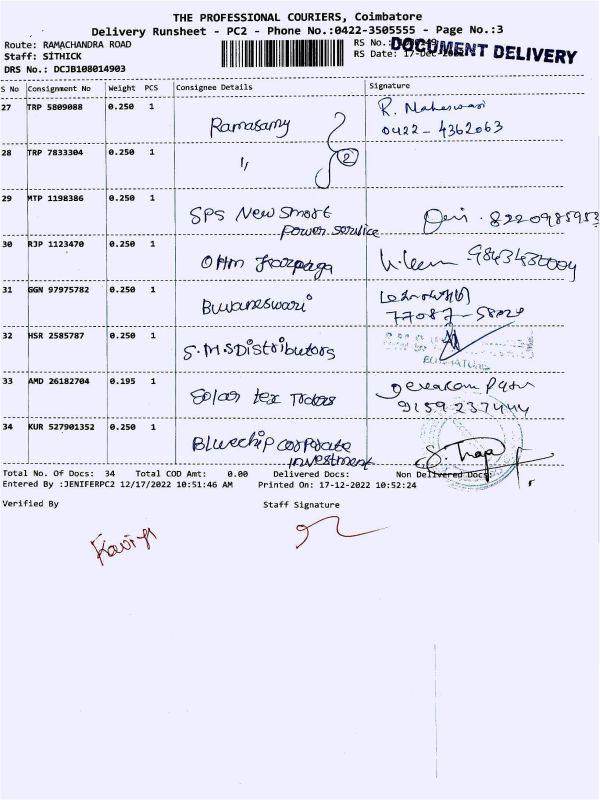 THE PROFESSIONAL COURIERS, Coimbatore
Delivery Runsheet - PC2 - Phone No.:0422-3505555 - Page No.:3
Route: RAMACHANDRA ROAD
RS No.:
DOCUMENT DELIVERY
Staff: SITHICK
RS Date: 17-Dec-
DRS No.: DCJB108014903
S No Consignment No Weight PCS Consignee Details Signature
27 TRP 5809088 0.250 1 Ramasamy R. Maheswari
0422-4362063
28 TRP 7833304 0.250 1 " 2
29 MTP 1198386 0.250 1 SPS New Smart
power service
30 RJP 1123470 0.250 1
31 GGN 97975782 0.250 1 Buvaneswari
32 HSR 2585787 0.250 1 S.M.S Distributors
33 AMD 26182704 0.195 1 Solar tex Traders
9159237444
34 KUR 527901352 0.250 1 Bluechip corporate
investment
Total No. Of Docs: 34 Total COD Amt: 0.00 Delivered Docs: Non Delivered Docs:
Entered By :JENIFERPC2 12/17/2022 10:51:46 AM Printed On: 17-12-2022 10:52:24
Verified By Staff Signature